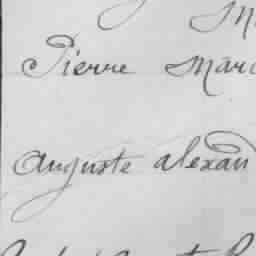 M
Pierre Marc
Auguste alexan